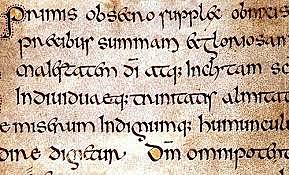 Primis obsecro supplex obnixis
precibus summam & gloriosam
maiestatem dī atq; inclitam sc
indiuiduaeq; trinitatis almitat
e miserum indignumq; humuncul
dire dignetur dm̄ omnipotent